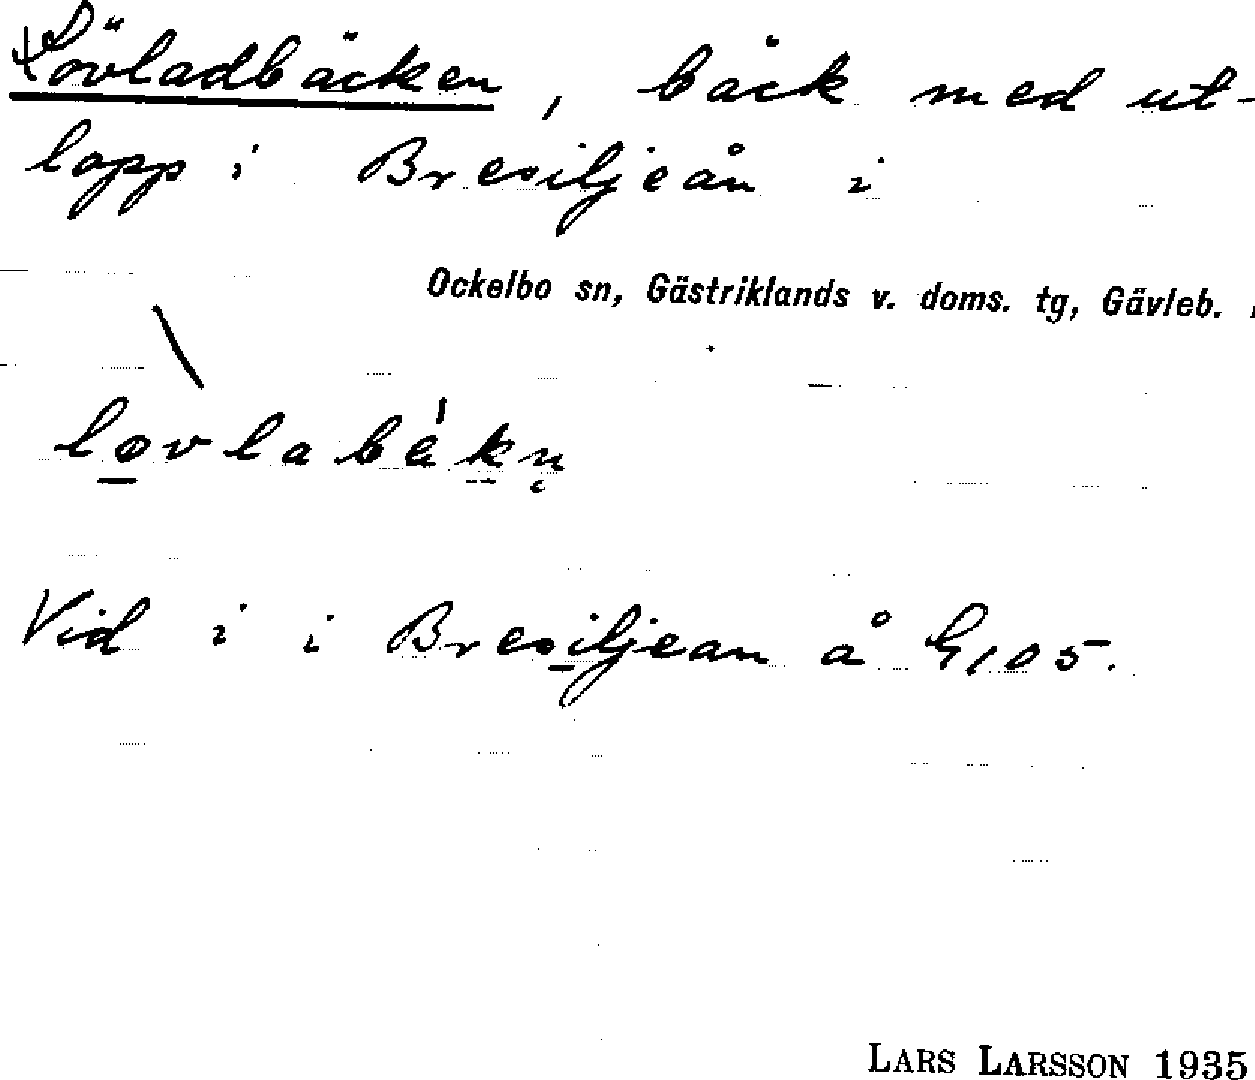 Lövladbäcken, bäck med ut-
lopp i Bresiljeån i
Ockelbo sn, Gästriklands v. doms. tg, Gävleb.
løvlabäkn̥
Vid i i Bresiljean å G105.
LARS LARSSON 1935